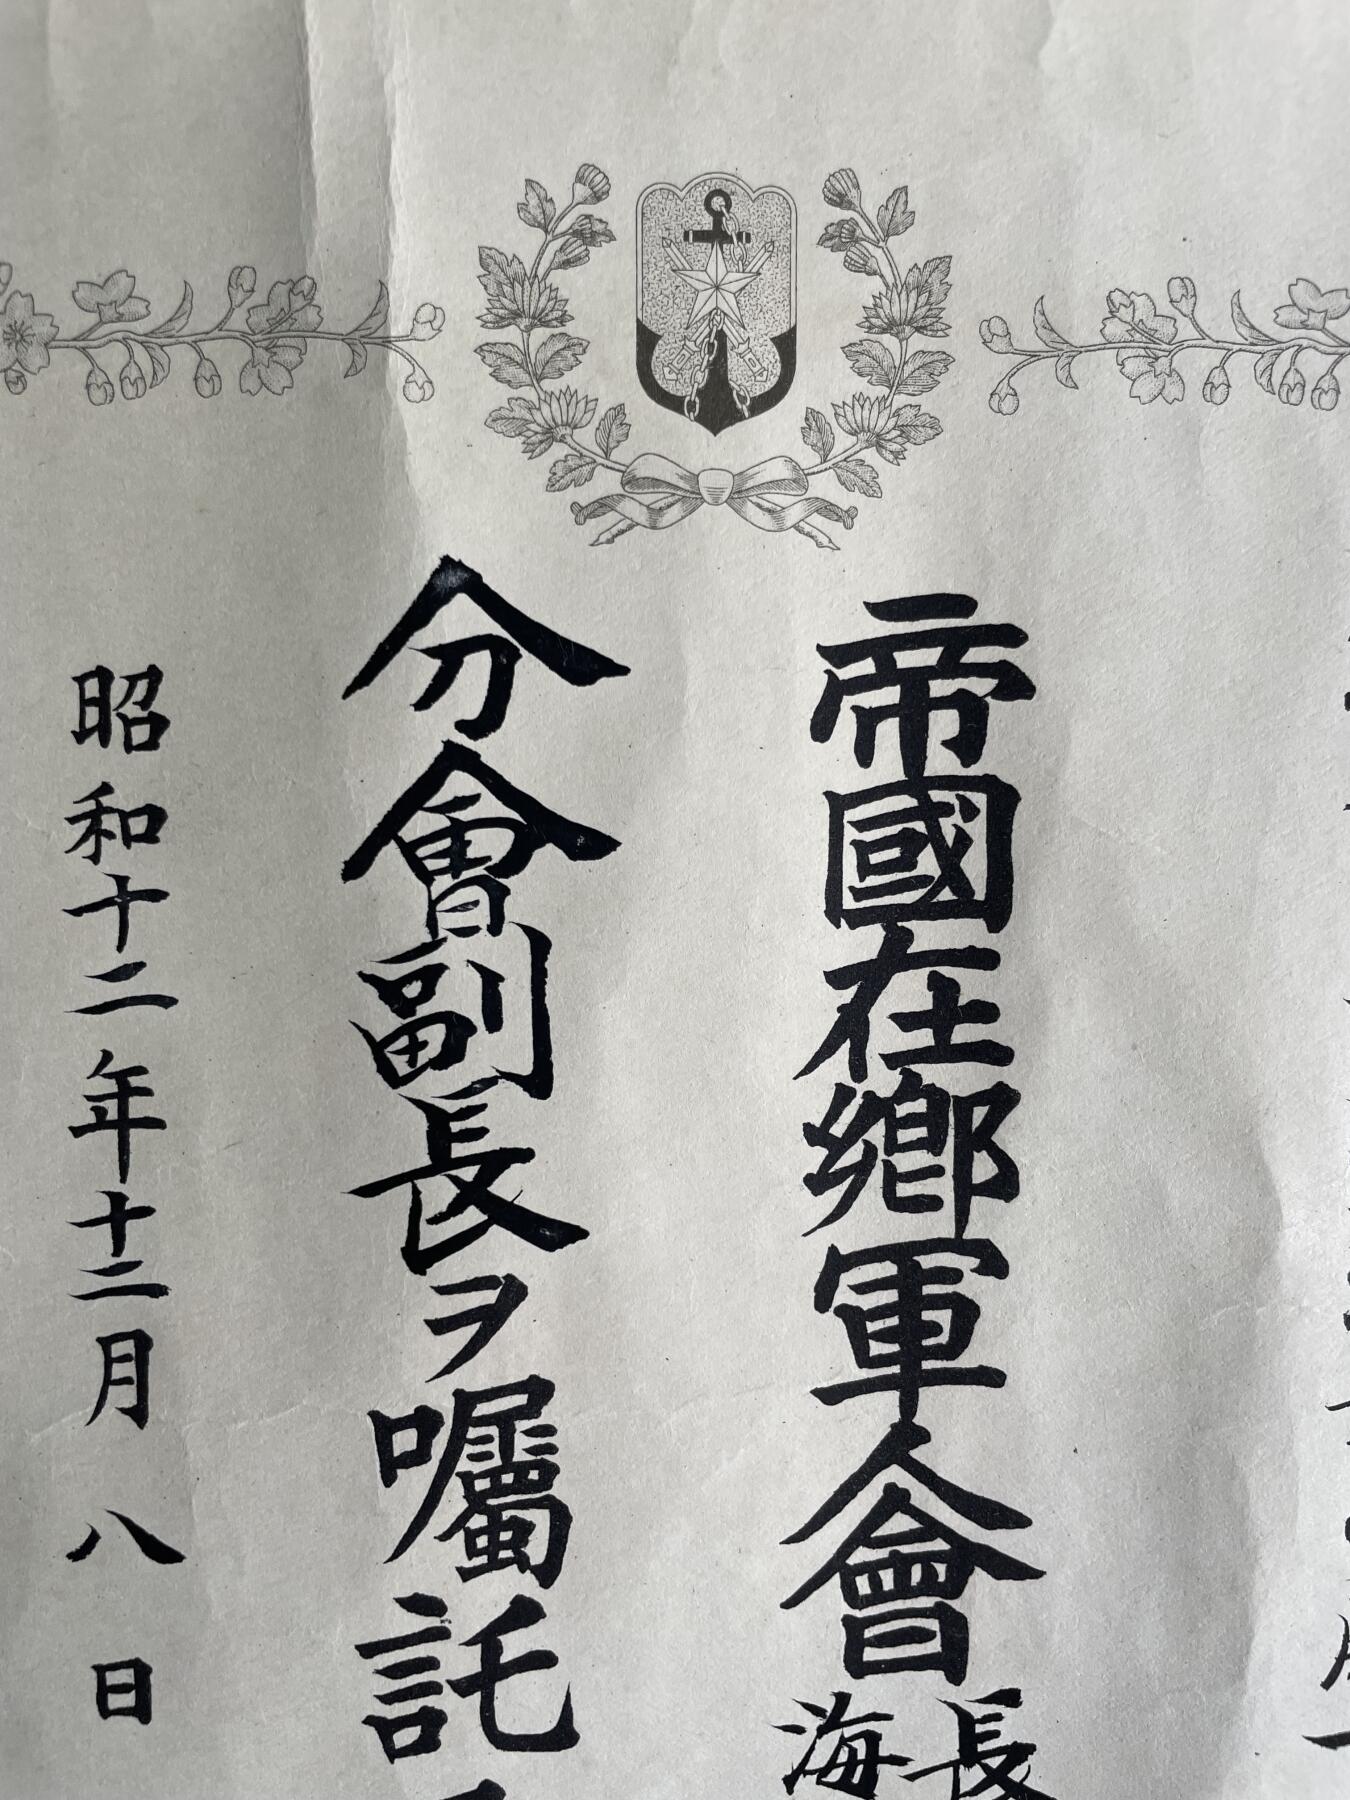 帝國在鄉軍會長
海
分會副長ヲ囑託
昭和十二年十二月八日